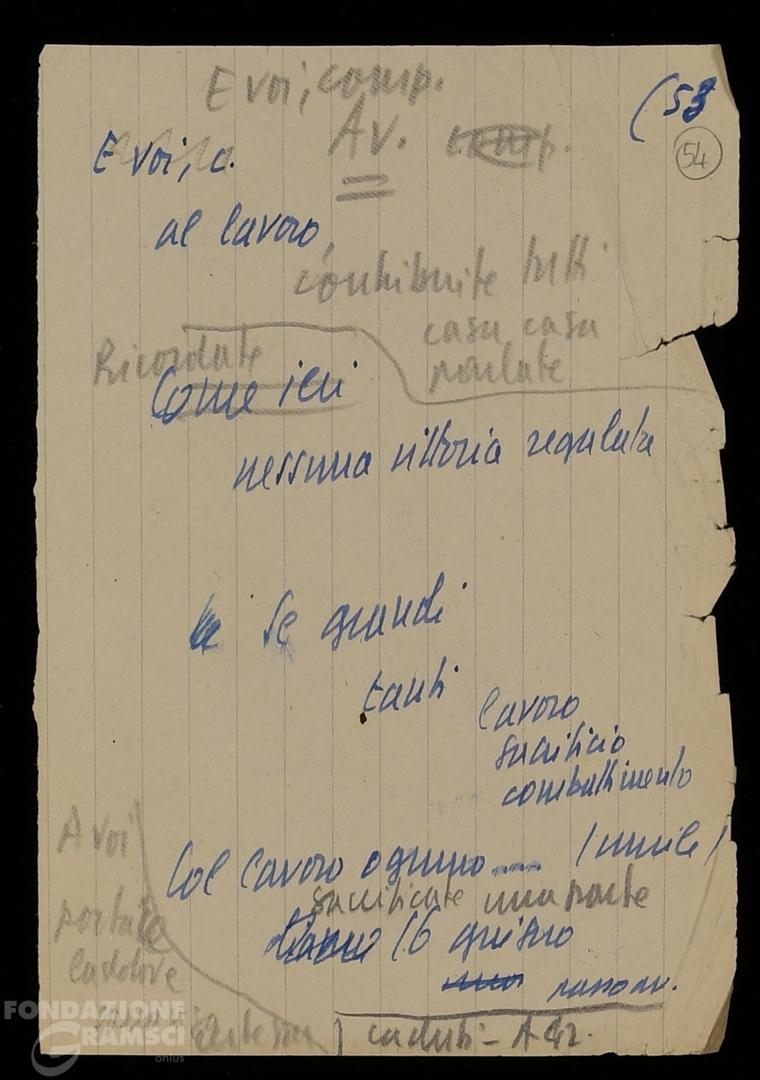 E voi, comp.
(53
54
Av.
E voi, c.
al lavoro
contribuite tutti
casa casa
parlate
Ricordate
Come ieri
nessuna vittoria regalata
Se grandi
tanti
lavoro
sacrificio
combattimento
A voi
Col lavoro ognuno .... (umile)
sacrificate una parte
portate
16 giugno
laddove
caduti - A Gr.
FONDAZIONE
GRAMSCI
onlus